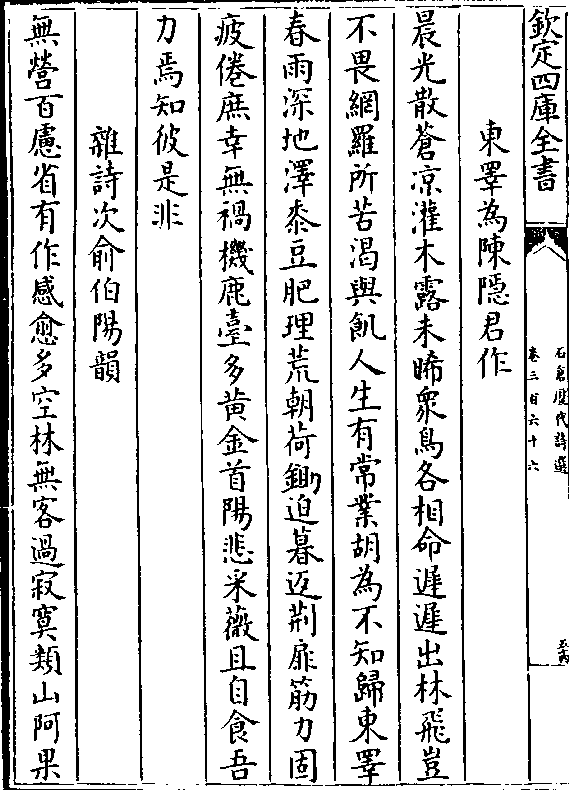 欽定四庫全書
石倉歷代詩選
卷三百六十六
東睪為陳隱君作
晨光散蒼凉灌木露未晞衆鳥各相命遲遲出林飛豈
不畏網羅所苦渴與飢人生有常業胡為不知歸東睪
春雨深地澤黍豆肥理荒朝荷鋤迫暮返荆扉筋力固
疲倦庶幸無禍機鹿臺多黄金首陽悲采薇且自食吾
力焉知彼是非
雜詩次俞伯陽韻
無營百慮省有作感愈多空林無客過寂寞類山阿果